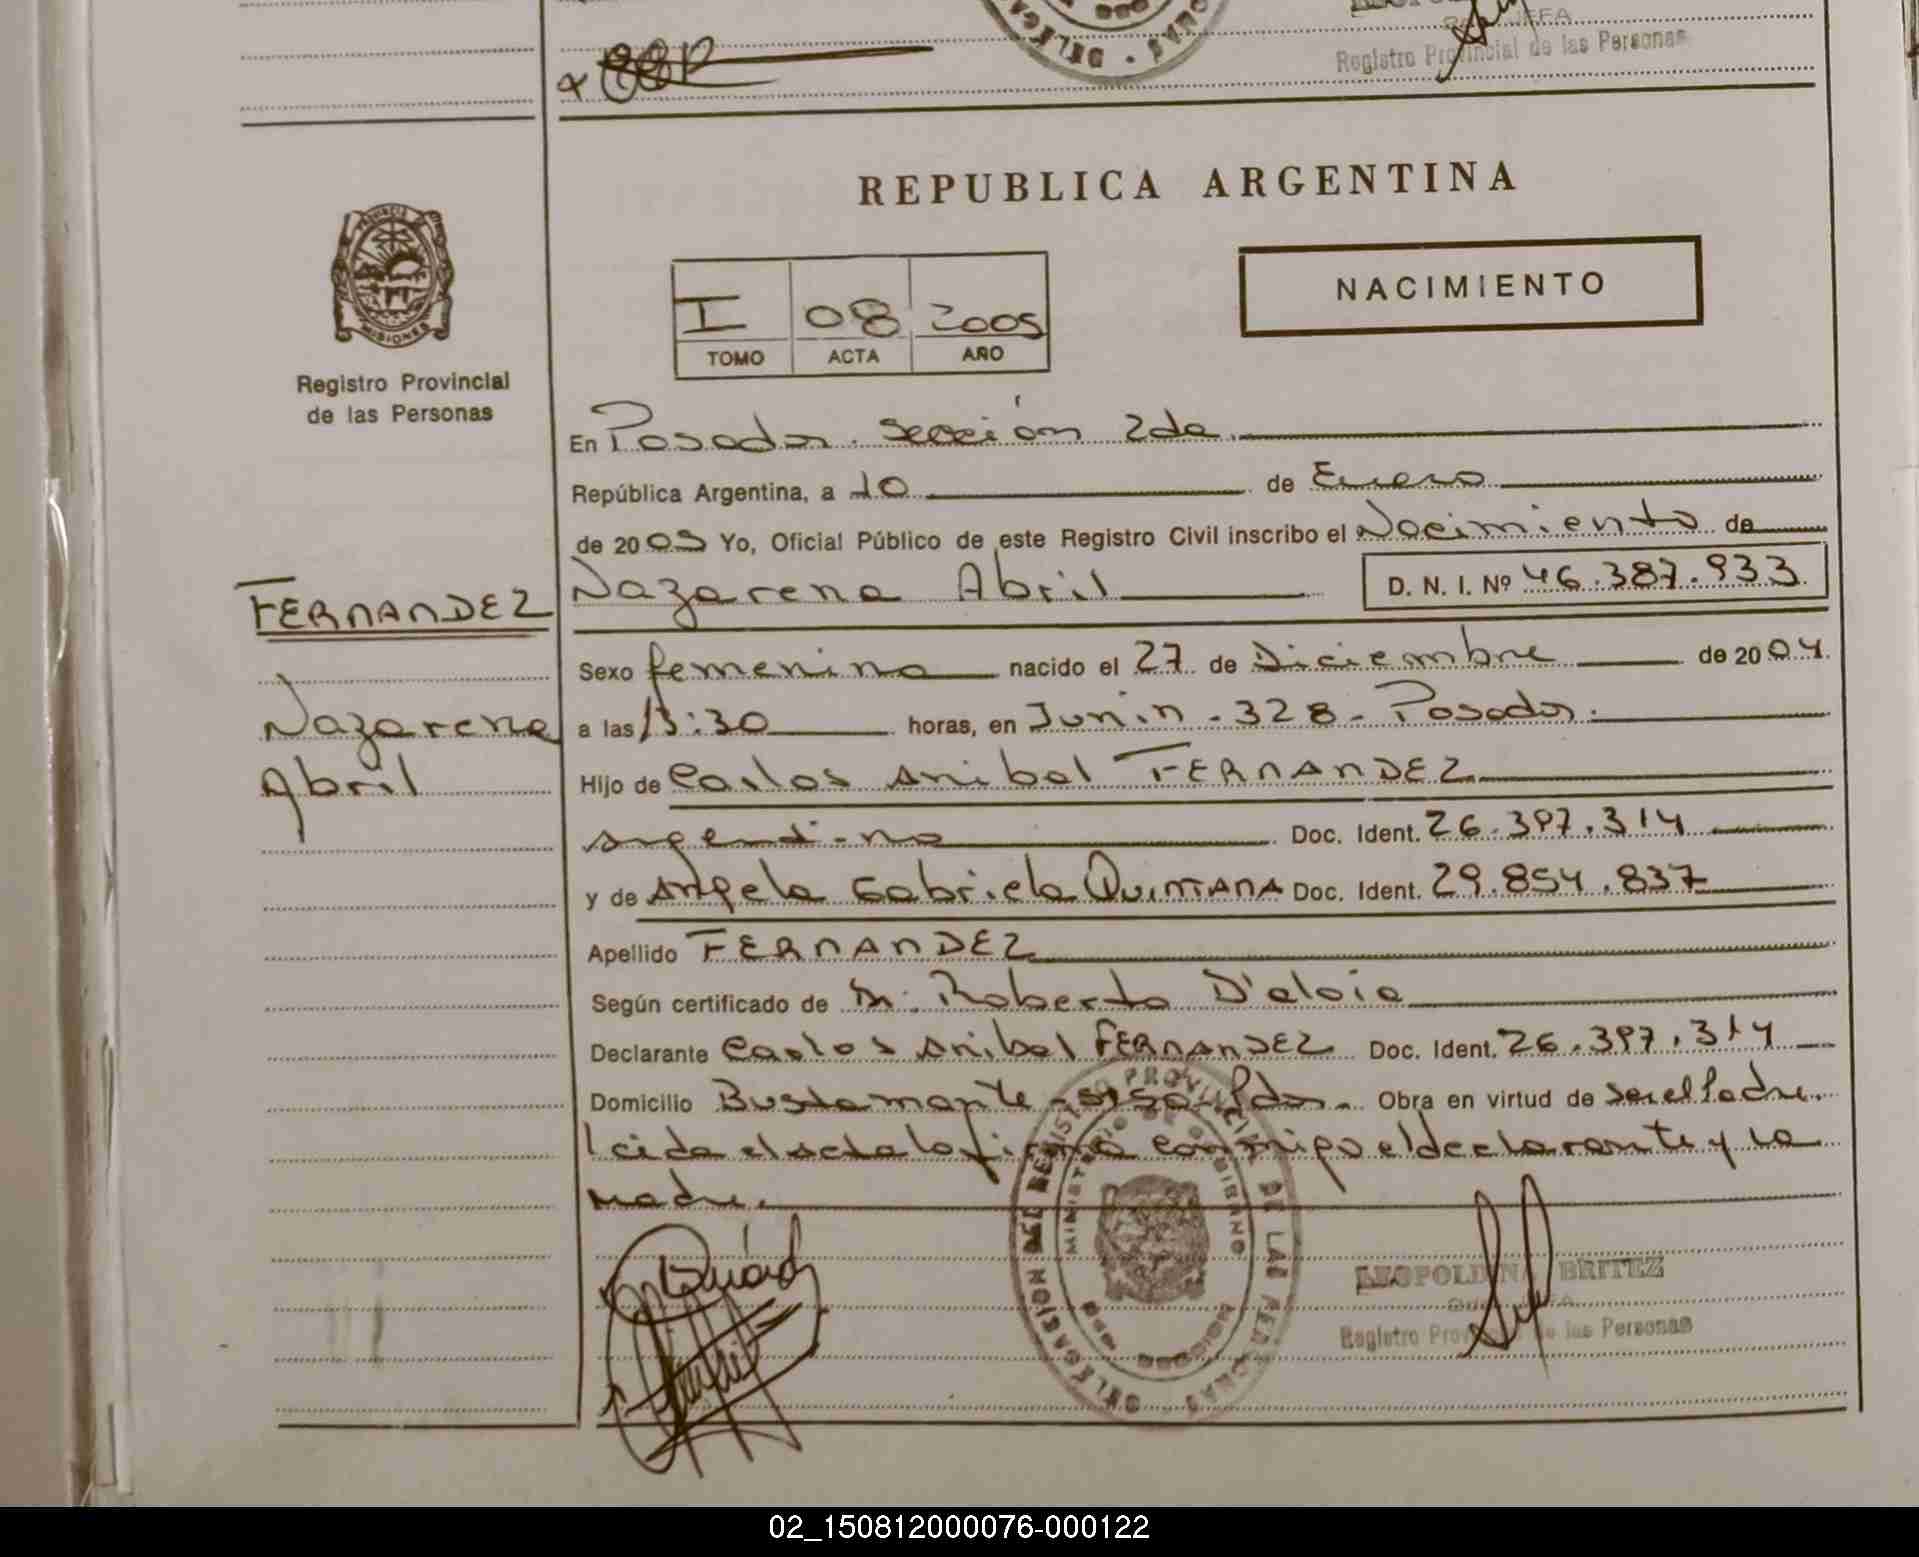 JEFA
Registro Provincial de las Personas
REPUBLICA ARGENTINA
PROVINCIA DE
MISIONES
NACIMIENTO
I 08 2005
TOMO ACTA AÑO
Registro Provincial
de las Personas
En Posadas. sección 2da.
República Argentina, a 10 de Enero
de 2005 Yo, Oficial Público de este Registro Civil inscribo el Nacimiento de
Nazarena Abril D. N. I. Nº 46.387.933
FERNANDEZ
Sexo femenino nacido el 27 de Diciembre de 2004.
Nazarena
a las 13:30 horas, en Junín - 328 - Posadas.
Abril
Hijo de Carlos Anibal FERNANDEZ
argentino Doc. Ident. 26.397.314
y de Angela Gabriela QUINTANA Doc. Ident. 29.854.837
Apellido FERNANDEZ
Según certificado de Dr. Roberto D'aloia
Declarante Carlos Anibal FERNANDEZ Doc. Ident. 26.397.314
Domicilio Bustamante Pdas. Obra en virtud de ser el Padre.
Leida el acta la firma conmigo el declarante y la
madre.
DELEGACION DEL REGISTRO PROVINCIAL DE LAS PERSONAS
MINISTERIO DE GOBIERNO
MISIONES
LEOPOLDINA BRITEZ
JEFA
Registro Provincial de las Personas
02_150812000076-000122